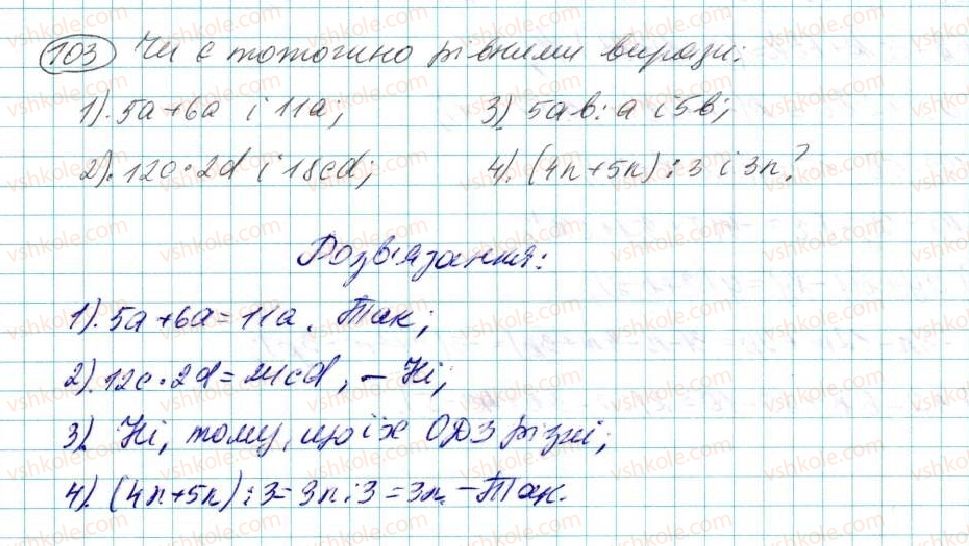 103 Чи є тотожно рівними вирази:
1). 5a+6a і 11a; 3). 5ab:a і 5b;
2). 12c·2d і 18cd; 4). (4n+5n):3 і 3n?
Розв'язання:
1). 5a+6a=11a. Так;
2). 12c·2d=24cd, - Ні;
3). Ні, тому, що їх ОДЗ різні;
4). (4n+5n):3=9n:3=3n. - Так.